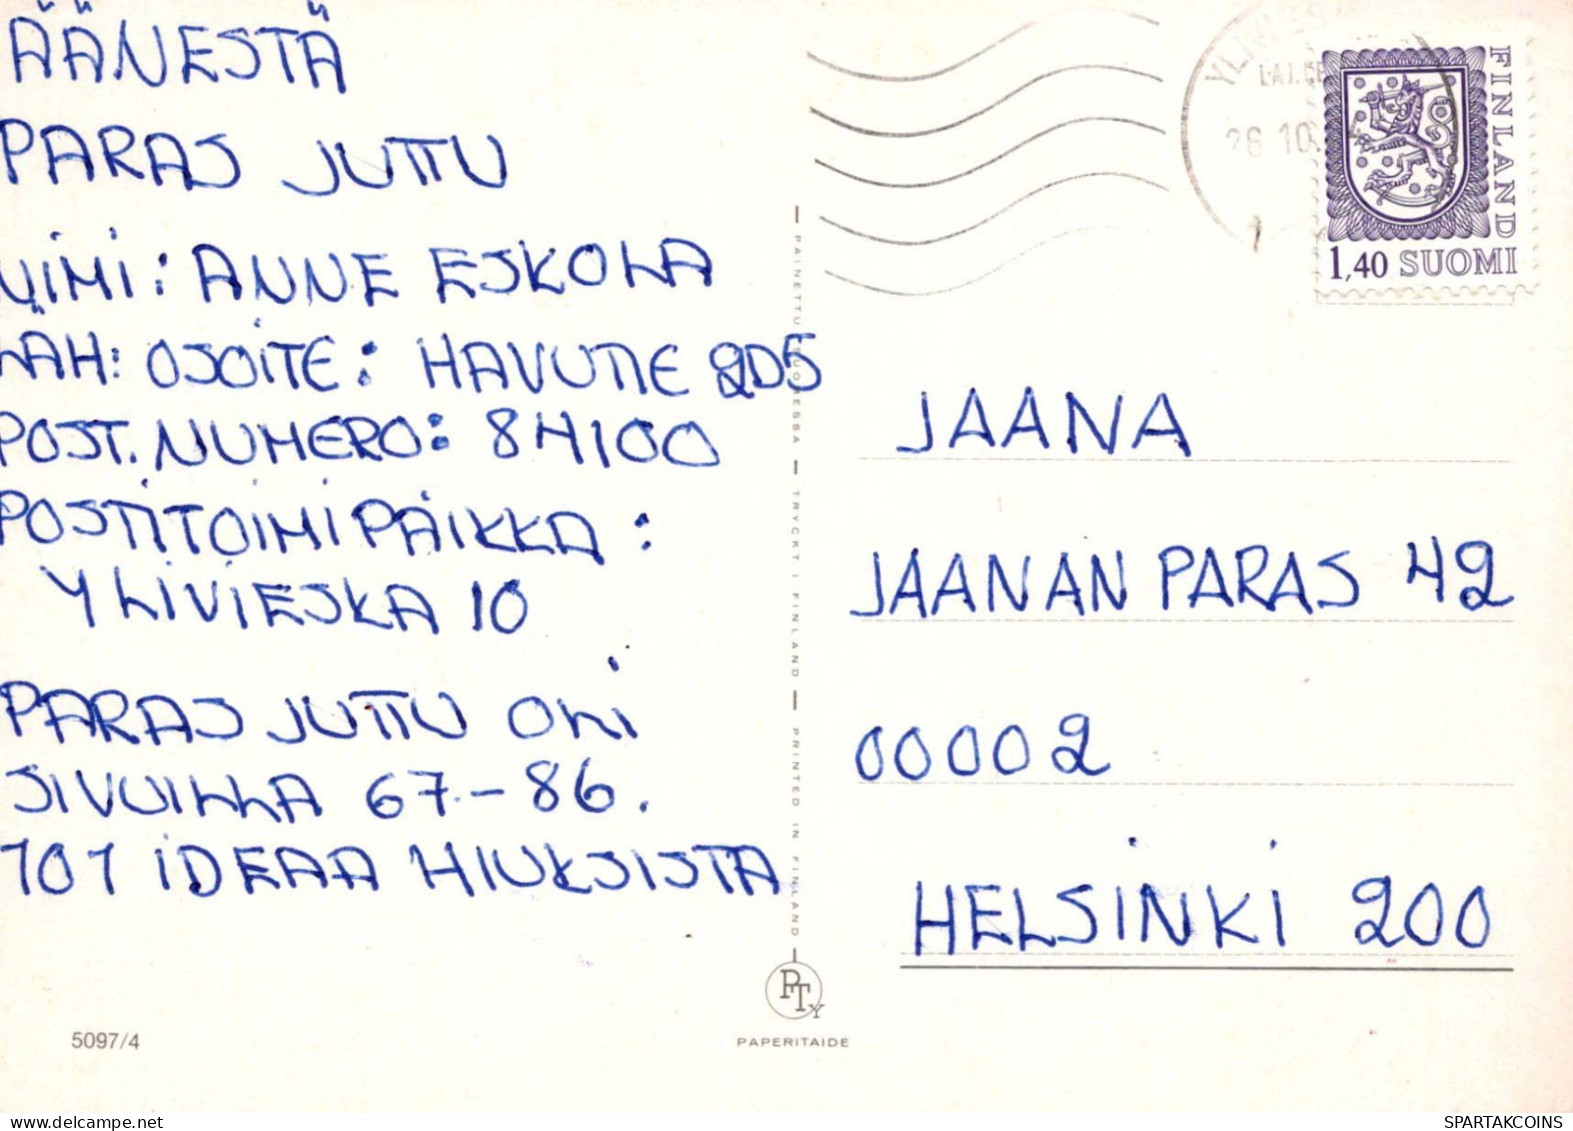 ÄÄNESTÄ
PARAS JUTTU
NIMI: ANNE ESKOLA
LÄH: OSOITE: HAVUTIE 2D5
POST. NUMERO: 84100
POSTITOIMIPAIKKA:
YLIVIESKA 10
PARAS JUTTU OLI
SIVUILLA 67-86.
101 IDEAA HIUKSISTA
5097/4
PAINETTU SUOMESSA
TRYCKT I FINLAND
PRINTED IN FINLAND
PTY
PAPERITAIDE
26.10.
FINLAND
1,40 SUOMI
JAANA
JAANAN PARAS 42
00002
HELSINKI 200
SPARTAKCOINS